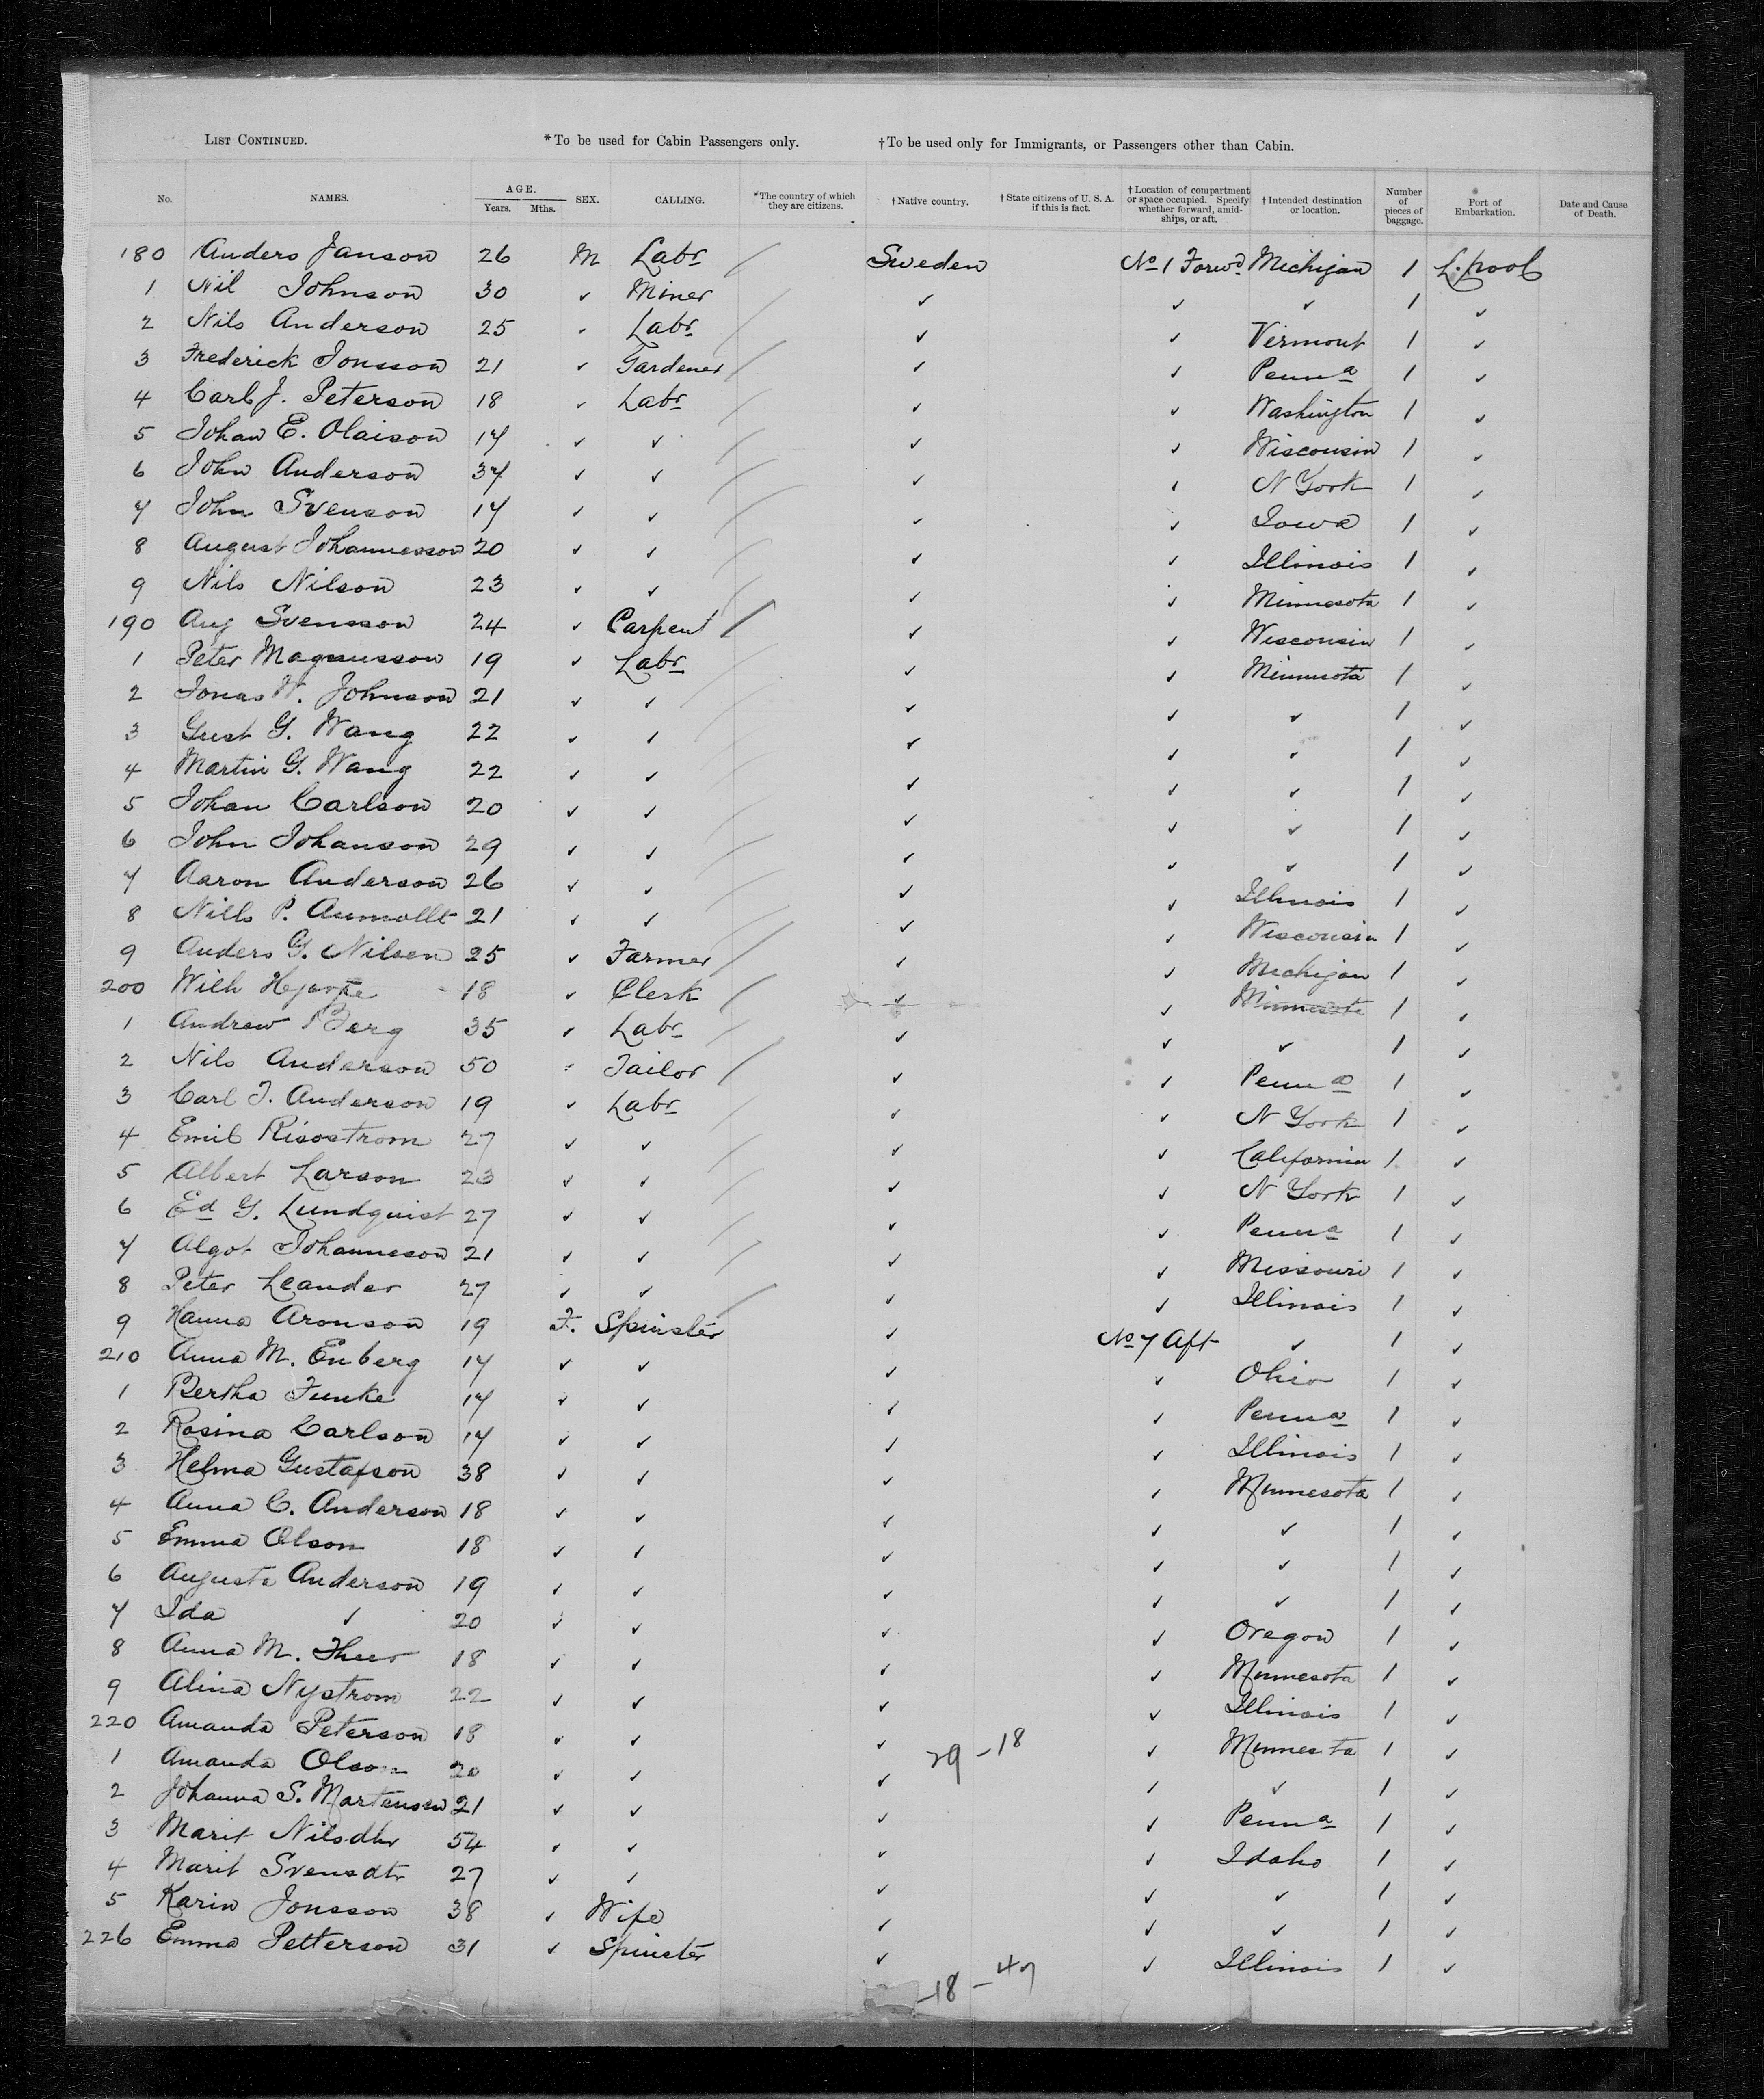 LIST CONTINUED. *To be used for Cabin Passengers only. †To be used only for Immigrants, or Passengers other than Cabin.
No. NAMES. AGE. Years. Mths. SEX. CALLING. *The country of which they are citizens. †Native country. †State citizens of U. S. A. if this is fact. †Location of compartment or space occupied. Specify whether forward, amidships, or aft. †Intended destination or location. Number of pieces of baggage. Port of Embarkation. Date and Cause of Death.
180 Anders Janson 26 M Labr / Sweden No 1 Forwd Michigan 1 L.pool
1 Nil Johnson 30 ✓ Miner / ✓ ✓ ✓ 1 ✓
2 Nils Anderson 25 ✓ Labr / ✓ ✓ Vermont 1 ✓
3 Frederick Jonsson 21 ✓ Gardener / ✓ ✓ Penna 1 ✓
4 Carl J. Peterson 18 ✓ Labr / ✓ ✓ Washington 1 ✓
5 Johan E. Olaison 17 ✓ ✓ / ✓ ✓ Wisconsin 1 ✓
6 John Anderson 37 ✓ ✓ / ✓ ✓ N York 1 ✓
7 John Svenson 17 ✓ ✓ / ✓ ✓ Iowa 1 ✓
8 August Johannesson 20 ✓ ✓ / ✓ ✓ Illinois 1 ✓
9 Nils Nilson 23 ✓ ✓ / ✓ ✓ Minnesota 1 ✓
190 Aug Svensson 24 ✓ Carpent / ✓ ✓ Wisconsin 1 ✓
1 Peter Magnusson 19 ✓ Labr / ✓ ✓ Minnesota 1 ✓
2 Jonas W. Johnson 21 ✓ ✓ / ✓ ✓ ✓ 1 ✓
3 Gust G. Wang 22 ✓ ✓ / ✓ ✓ ✓ 1 ✓
4 Martin G. Wang 22 ✓ ✓ / ✓ ✓ ✓ 1 ✓
5 Johan Carlson 20 ✓ ✓ / ✓ ✓ ✓ 1 ✓
6 John Johanson 29 ✓ ✓ / ✓ ✓ ✓ 1 ✓
7 Aaron Anderson 26 ✓ ✓ / ✓ ✓ Illinois 1 ✓
8 Nills P. 21 ✓ ✓ / ✓ ✓ Wisconsin 1 ✓
9 Anders G. Nilsen 25 ✓ Farmer / ✓ ✓ Michigan 1 ✓
200 Wilh 18 ✓ Clerk / ✓ ✓ Minnesota 1 ✓
1 Andrew Berg 35 ✓ Labr / ✓ ✓ ✓ 1 ✓
2 Nils Anderson 50 ✓ Tailor / ✓ ✓ Penna 1 ✓
3 Carl J. Anderson 19 ✓ Labr / ✓ ✓ N York 1 ✓
4 Emil Risostrom 27 ✓ ✓ / ✓ ✓ California 1 ✓
5 Albert Larson 23 ✓ ✓ / ✓ ✓ N York 1 ✓
6 Ed G. Lundquist 27 ✓ ✓ / ✓ ✓ Penna 1 ✓
7 Algot Johanneson 21 ✓ ✓ / ✓ ✓ Missouri 1 ✓
8 Peter Leander 27 ✓ ✓ / ✓ ✓ Illinois 1 ✓
9 Hanna Aronson 19 F. Spinster ✓ No 7 Aft ✓ 1 ✓
210 Anna M. Enberg 17 ✓ ✓ ✓ ✓ Ohio 1 ✓
1 Bertha Funke 17 ✓ ✓ ✓ ✓ Penna 1 ✓
2 Rosina Carlson 17 ✓ ✓ ✓ ✓ Illinois 1 ✓
3 Helma Gustafson 38 ✓ ✓ ✓ ✓ Minnesota 1 ✓
4 Anna C. Anderson 18 ✓ ✓ ✓ ✓ ✓ 1 ✓
5 Emma Olson 18 ✓ ✓ ✓ ✓ ✓ 1 ✓
6 Augusta Anderson 19 ✓ ✓ ✓ ✓ ✓ 1 ✓
7 Ida ✓ 20 ✓ ✓ ✓ ✓ Oregon 1 ✓
8 Anna M. 18 ✓ ✓ ✓ ✓ Minnesota 1 ✓
9 Alina Nystrom 22 ✓ ✓ ✓ ✓ Illinois 1 ✓
220 Amanda Peterson 18 ✓ ✓ ✓ 29-18 ✓ Minnesota 1 ✓
1 Amanda Olson 20 ✓ ✓ ✓ ✓ ✓ 1 ✓
2 Johanna S. Martenson 21 ✓ ✓ ✓ ✓ Penna 1 ✓
3 Marit Nilsdtr 54 ✓ ✓ ✓ ✓ Idaho 1 ✓
4 Marit Svensdtr 27 ✓ ✓ ✓ ✓ ✓ 1 ✓
5 Karin Jonsson 38 ✓ Wife ✓ ✓ ✓ 1 ✓
226 Emma Petterson 31 ✓ Spinster ✓ ✓ Illinois 1 ✓
-18-47